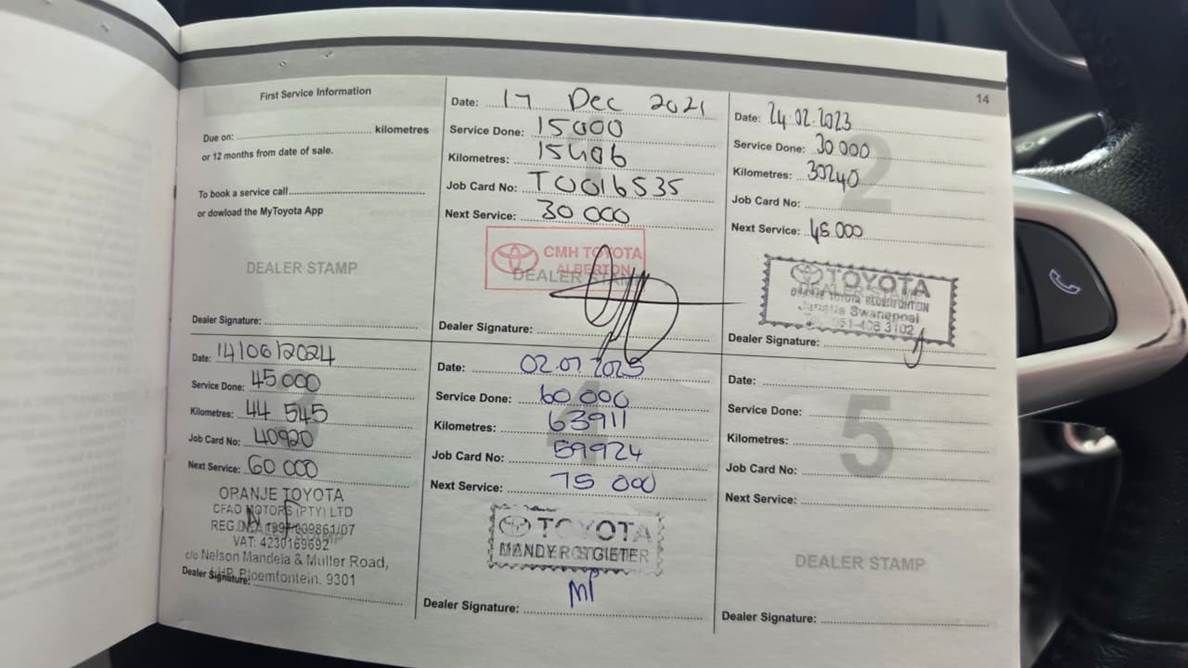 First Service Information
Due on: kilometres
or 12 months from date of sale.
To book a service call
or dowload the MyToyota App
DEALER STAMP
Dealer Signature:
Date: 17 Dec 2021
Service Done: 15000
Kilometres: 15406
Job Card No: TU016535
Next Service: 30 000
CMH TOYOTA
ALBERTON
DEALER STAMP
Dealer Signature:
14
2
Date: 24.02.2023
Service Done: 30 000
Kilometres: 30240
Job Card No:
Next Service: 45 000
TOYOTA
TOYOTA BLOEMFONTEIN
Swanepoel
051-408 3102
Dealer Signature:
Date: 14/06/2024
Service Done: 45 000
Kilometres: 44 545
Job Card No: 40920
Next Service: 60 000
ORANJE TOYOTA
CFAO MOTORS (PTY) LTD
VAT: 4230169692
c/o Nelson Mandela & Muller Road,
Bloemfontein, 9301
Dealer Signature:
4
Date: 02.07.2025
Service Done: 60 000
Kilometres: 63911
Job Card No: 59924
Next Service: 75 000
TOYOTA
MANDY ROTGIETER
MP
Dealer Signature:
5
Date:
Service Done:
Kilometres:
Job Card No:
Next Service:
DEALER STAMP
Dealer Signature: